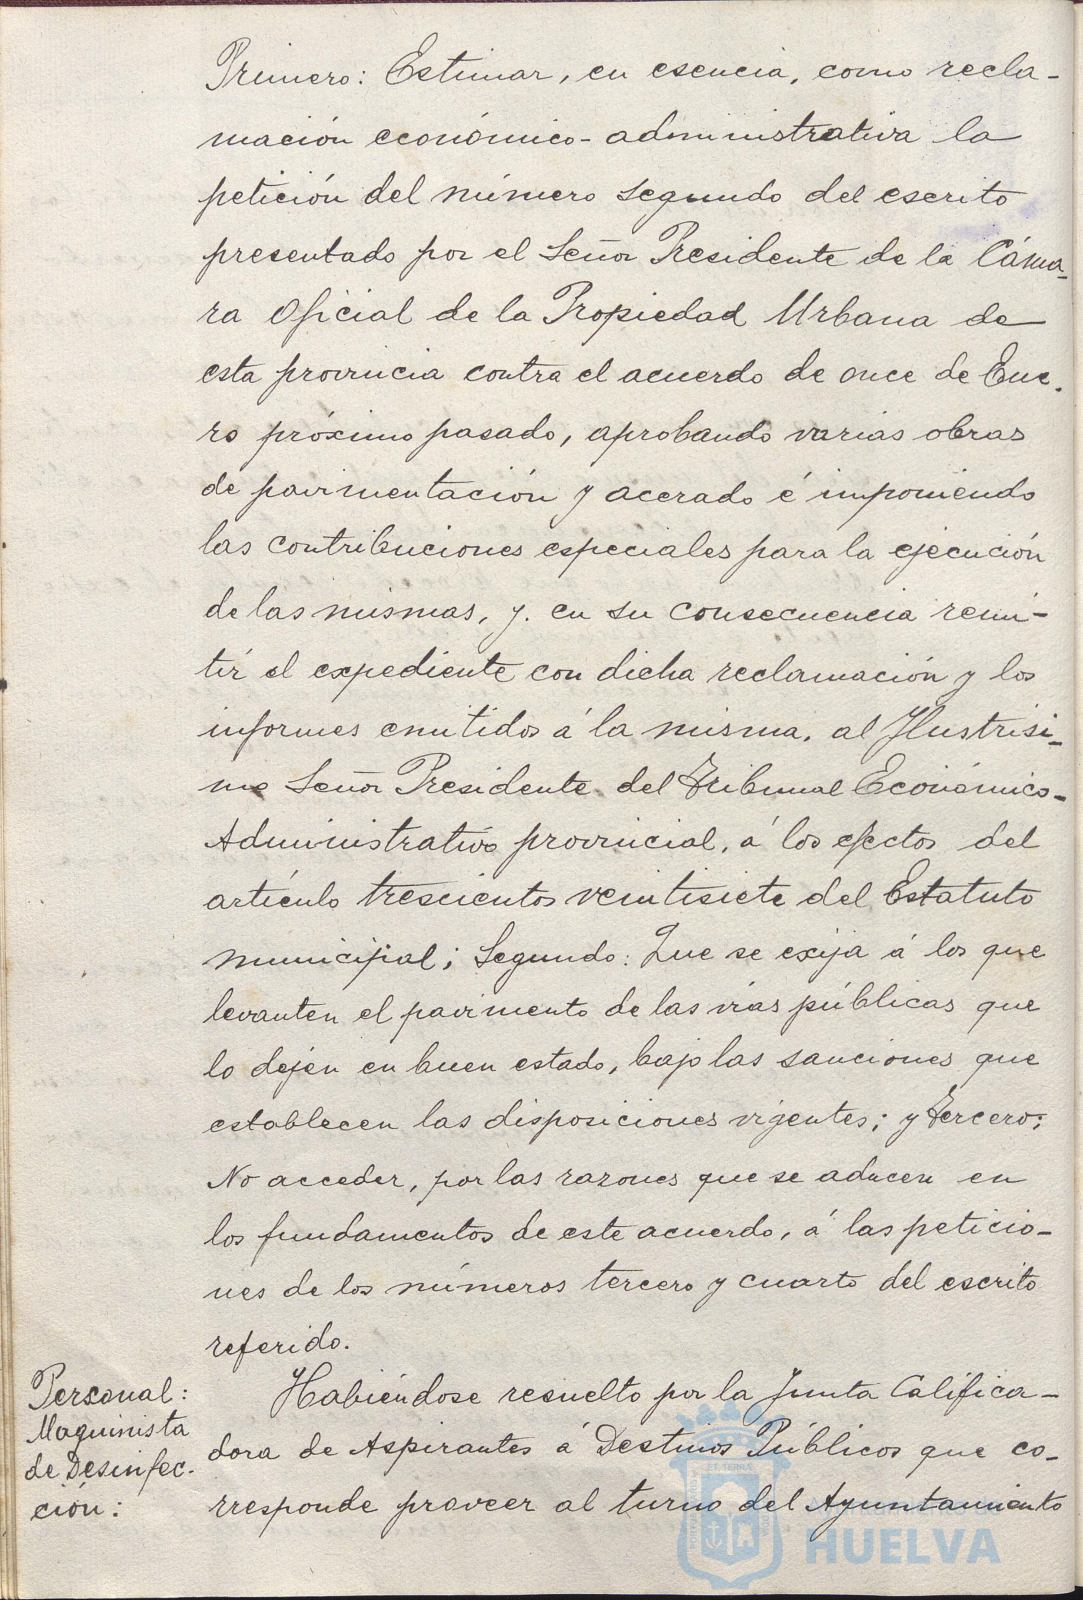 Primero: Estimar, en esencia, como recla-
mación económico-administrativa la
petición del número segundo del escrito
presentado por el Señor Presidente de la Cáma-
ra Oficial de la Propiedad Urbana de
esta provincia contra el acuerdo de once de Ene-
ro próximo pasado, aprobando varias obras
de pavimentación y acerado é imponiendo
las contribuciones especiales para la ejecución
de las mismas, y. en su consecuencia remi-
tir el expediente con dicha reclamación y los
informes emitidos á la misma, al Ilustrísi-
mo Señor Presidente del Tribunal Económico-
Administrativo provincial, á los efectos del
artículo trescientos veintisiete del Estatuto
municipal; Segundo: Que se exija á los que
levanten el pavimento de las vías públicas que
lo dejen en buen estado, bajo las sanciones que
establecen las disposiciones vigentes; y tercero:
No acceder, por las razones que se aducen en
los fundamentos de este acuerdo, á las peticio-
nes de los números tercero y cuarto del escrito
referido.
Personal:
Maquinista
de Desinfec-
ción:
Habiéndose resuelto por la Junta Califica-
dora de Aspirantes á Destinos Públicos que co-
rresponde proveer al turno del Ayuntamiento
Ayuntamiento de
HUELVA